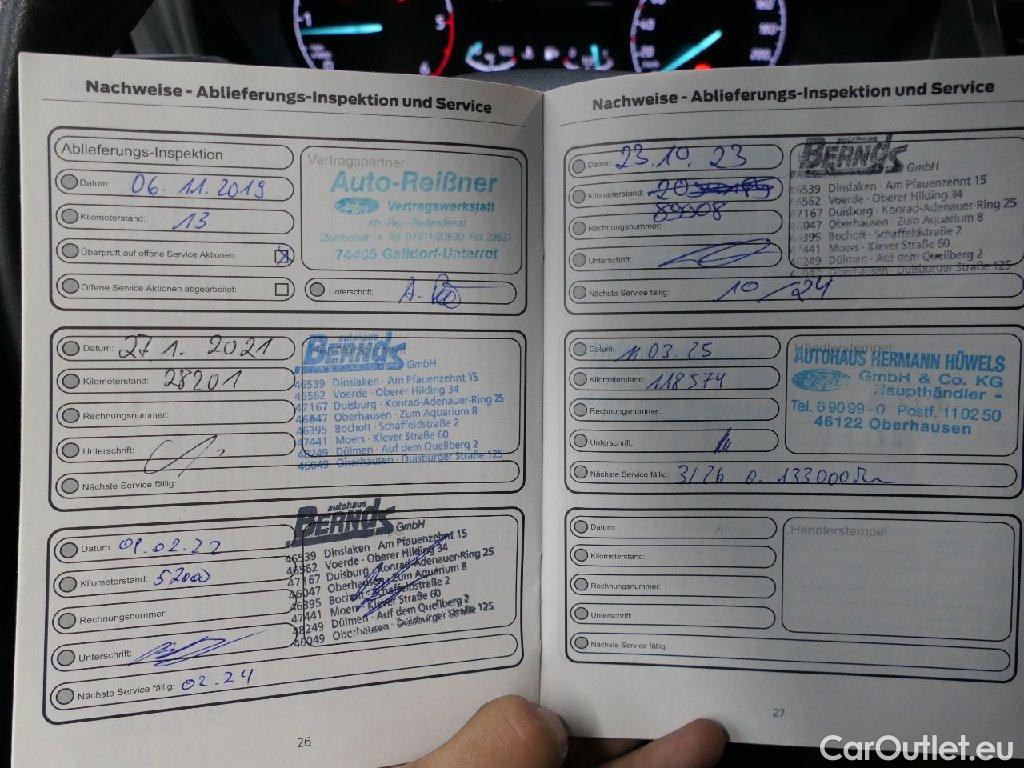 Nachweise - Ablieferungs-Inspektion und Service
Ablieferungs-Inspektion
Datum: 06.11.2019
Kilometerstand: 13
Überprüft auf offene Service Aktionen:
Offene Service Aktionen abgearbeitet:
Vertragspartner
Auto-Reißner
Ford Vertragswerkstatt
74405 Gaildorf-Unterrot
Unterschrift:
Datum: 27 1. 2021
Kilometerstand: 28201
Rechnungsnummer:
Unterschrift:
Nächste Service fällig:
autohaus
BERNDS GmbH
46539 Dinslaken · Am Pfauenzehnt 15
46562 Voerde · Oberer Hilding 34
47167 Duisburg · Konrad-Adenauer-Ring 25
46047 Oberhausen · Zum Aquarium 8
46395 Bocholt · Schaffeldstraße 2
47441 Moers · Klever Straße 60
48249 Dülmen · Auf dem Quellberg 2
46049 Oberhausen · Duisburger Straße 125
Datum: 01.02.22
Kilometerstand: 52000
Rechnungsnummer:
Unterschrift:
Nächste Service fällig: 02.24
autohaus
BERNDS GmbH
46539 Dinslaken · Am Pfauenzehnt 15
46562 Voerde · Oberer Hilding 34
47167 Duisburg · Konrad-Adenauer-Ring 25
46047 Oberhausen · Zum Aquarium 8
46395 Bocholt · Schaffeldstraße 2
47441 Moers · Klever Straße 60
48249 Dülmen · Auf dem Quellberg 2
46049 Oberhausen · Duisburger Straße 125
26
Nachweise - Ablieferungs-Inspektion und Service
Datum: 23.10.23
Kilometerstand:
89908
Rechnungsnummer:
Unterschrift:
Nächste Service fällig: 10/24
autohaus
BERNDS GmbH
46539 Dinslaken · Am Pfauenzehnt 15
46562 Voerde · Oberer Hilding 34
47167 Duisburg · Konrad-Adenauer-Ring 25
46047 Oberhausen · Zum Aquarium 8
46395 Bocholt · Schaffeldstraße 2
47441 Moers · Klever Straße 60
48249 Dülmen · Auf dem Quellberg 2
46049 Oberhausen · Duisburger Straße 125
Datum: 11.03.25
Kilometerstand: 118574
Rechnungsnummer:
Unterschrift:
Nächste Service fällig: 3/26 o. 133000km
Händlerstempel
AUTOHAUS HERMANN HÜWELS
Ford GmbH & Co. KG
- Haupthändler -
Tel. 6 90 99 - 0 Postf. 11 02 50
46122 Oberhausen
Datum:
Kilometerstand:
Rechnungsnummer:
Unterschrift:
Nächste Service fällig:
Händlerstempel
27
CarOutlet.eu